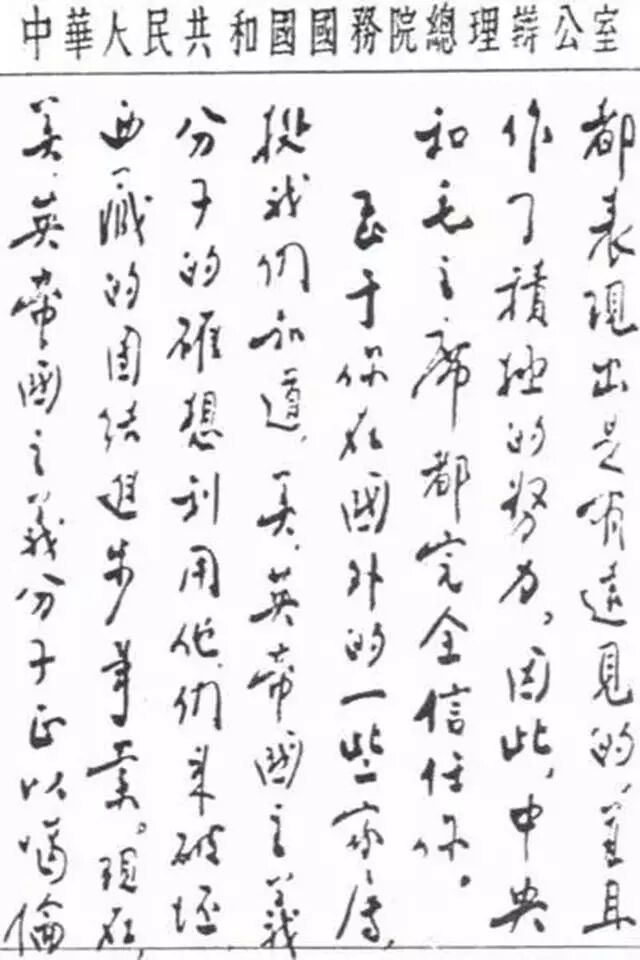 中華人民共和國國務院總理辦公室
都表現出是有遠見的，並且
作了積極的努力，因此，中央
和毛主席都完全信任你。
至于你在國外的一些家屬，
據我們知道，美、英帝國主義
分子的確想利用他們來破坏
西藏的团结進步事業。現在，
美、英帝國主義分子正以噶倫